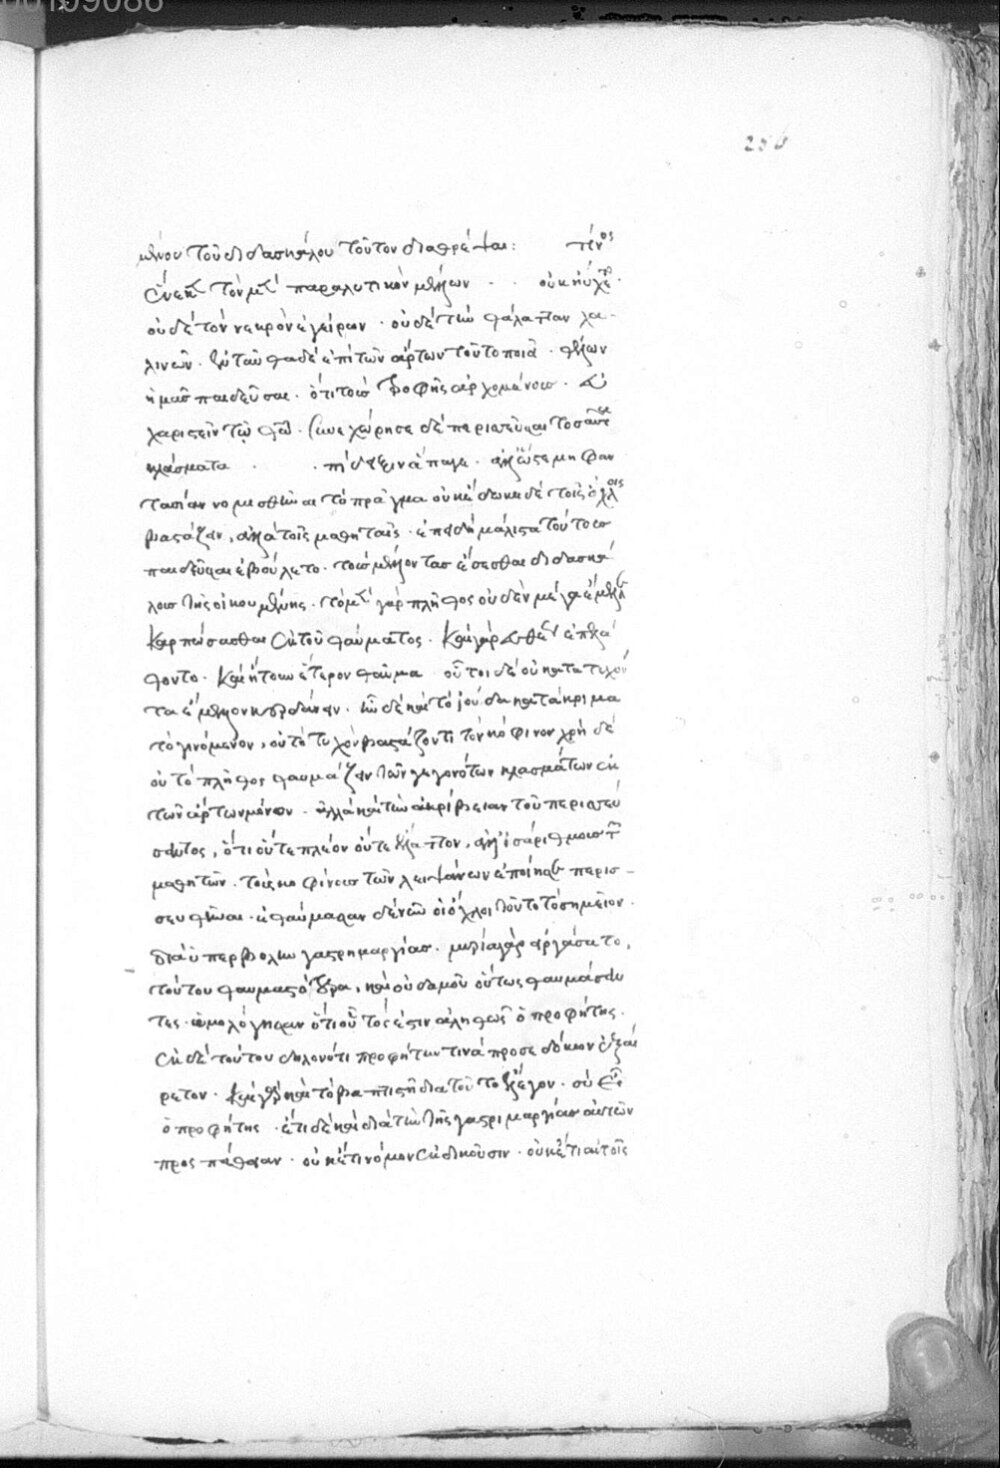 μένου τοῦ διδασκάλου τοῦτον διαθρέψαι: τίνος
ἕνεκεν τὸν μὲν παραλυτικὸν μέλλων οὐκ ηὔχετο.
οὐδὲ τὸν νεκρὸν ἐγείρων. οὐδὲ τὴν θάλατταν χα-
λινῶν. ἐνταῦθα δὲ ἐπὶ τῶν ἄρτων τοῦτο ποιεῖ. θέλων
ἡμᾶς παιδεῦσαι. ὅτι τοὺς τροφῆς ἀρχομένους. εὐ
χαριστεῖν τῷ θεῷ. συνεχώρησε δὲ περιττεῦσαι τοσαῦτα
κλάσματα
τασίαν νομισθῆναι τὸ πρᾶγμα οὐκ ἔδωκε δὲ τοῖς ὄχλοις
βαστάζειν, ἀλλὰ τοῖς μαθηταῖς. ἐπειδὴ μάλιστα τούτους
παιδεῦσαι ἐβούλετο. τοὺς μέλλοντας ἔσεσθαι διδασκά
λους τῆς οἰκουμένης. τὸ μὲν γὰρ πλῆθος οὐδὲν μέγα ἔμελλε
καρπώσασθαι ἐκ τοῦ θαύματος. καὶ γὰρ εὐθέως ἐπελά
θοντο. καὶ ᾔτουν ἕτερον θαῦμα οὗτοι δὲ οὐ κατὰ τυχόν
τα ἔμελλον κερδαίνειν. ἦν δὲ καὶ τῷ ἰούδα κατάκριμα
τὸ γινόμενον, οὐ τὸ τυχὸν βαστάζοντι τὸν κόφινον χρὴ δὲ
οὐ τὸ πλῆθος θαυμάζειν τῶν γεγονότων κλασμάτων ἐκ
τῶν ἄρτων μόνον. ἀλλὰ καὶ τὴν ἀκρίβειαν τοῦ περιττεύ
σαντος, ὅτι οὔτε πλέον οὔτε ἔλαττον, ἀλλ' ἰσαρίθμους τῶν
μαθητῶν. τοὺς κοφίνους τῶν λειψάνων ἐποίησε περισ-
σευθῆναι. ἐθαύμασαν δὲ νῦν οἱ ὄχλοι τοῦτο τὸ σημεῖον.
διὰ ὑπερβολὴν γαστριμαργίας. μυρία γὰρ ἐργάσατο,
τούτου θαυμαστότερα, καὶ οὐδαμοῦ οὕτως θαυμάσαν
τες. ὡμολόγησαν ὅτι οὗτός ἐστιν ἀληθῶς ὁ προφήτης.
ἐκ δὲ τούτου δηλονότι προφήτην τινὰ προσεδόκων ἐξαί
ρετον. καὶ γὰρ καὶ τῷ βαπτιστῇ διὰ τοῦτο ἔλεγον. σὺ εἶ
ὁ προφήτης. ἔτι δὲ καὶ διὰ τὴν τῆς γαστριμαργίας αὐτῶν
προσπάθειαν. οὐκέτι νόμον ἐκδικοῦσιν. οὐκέτι αὐτοῖς